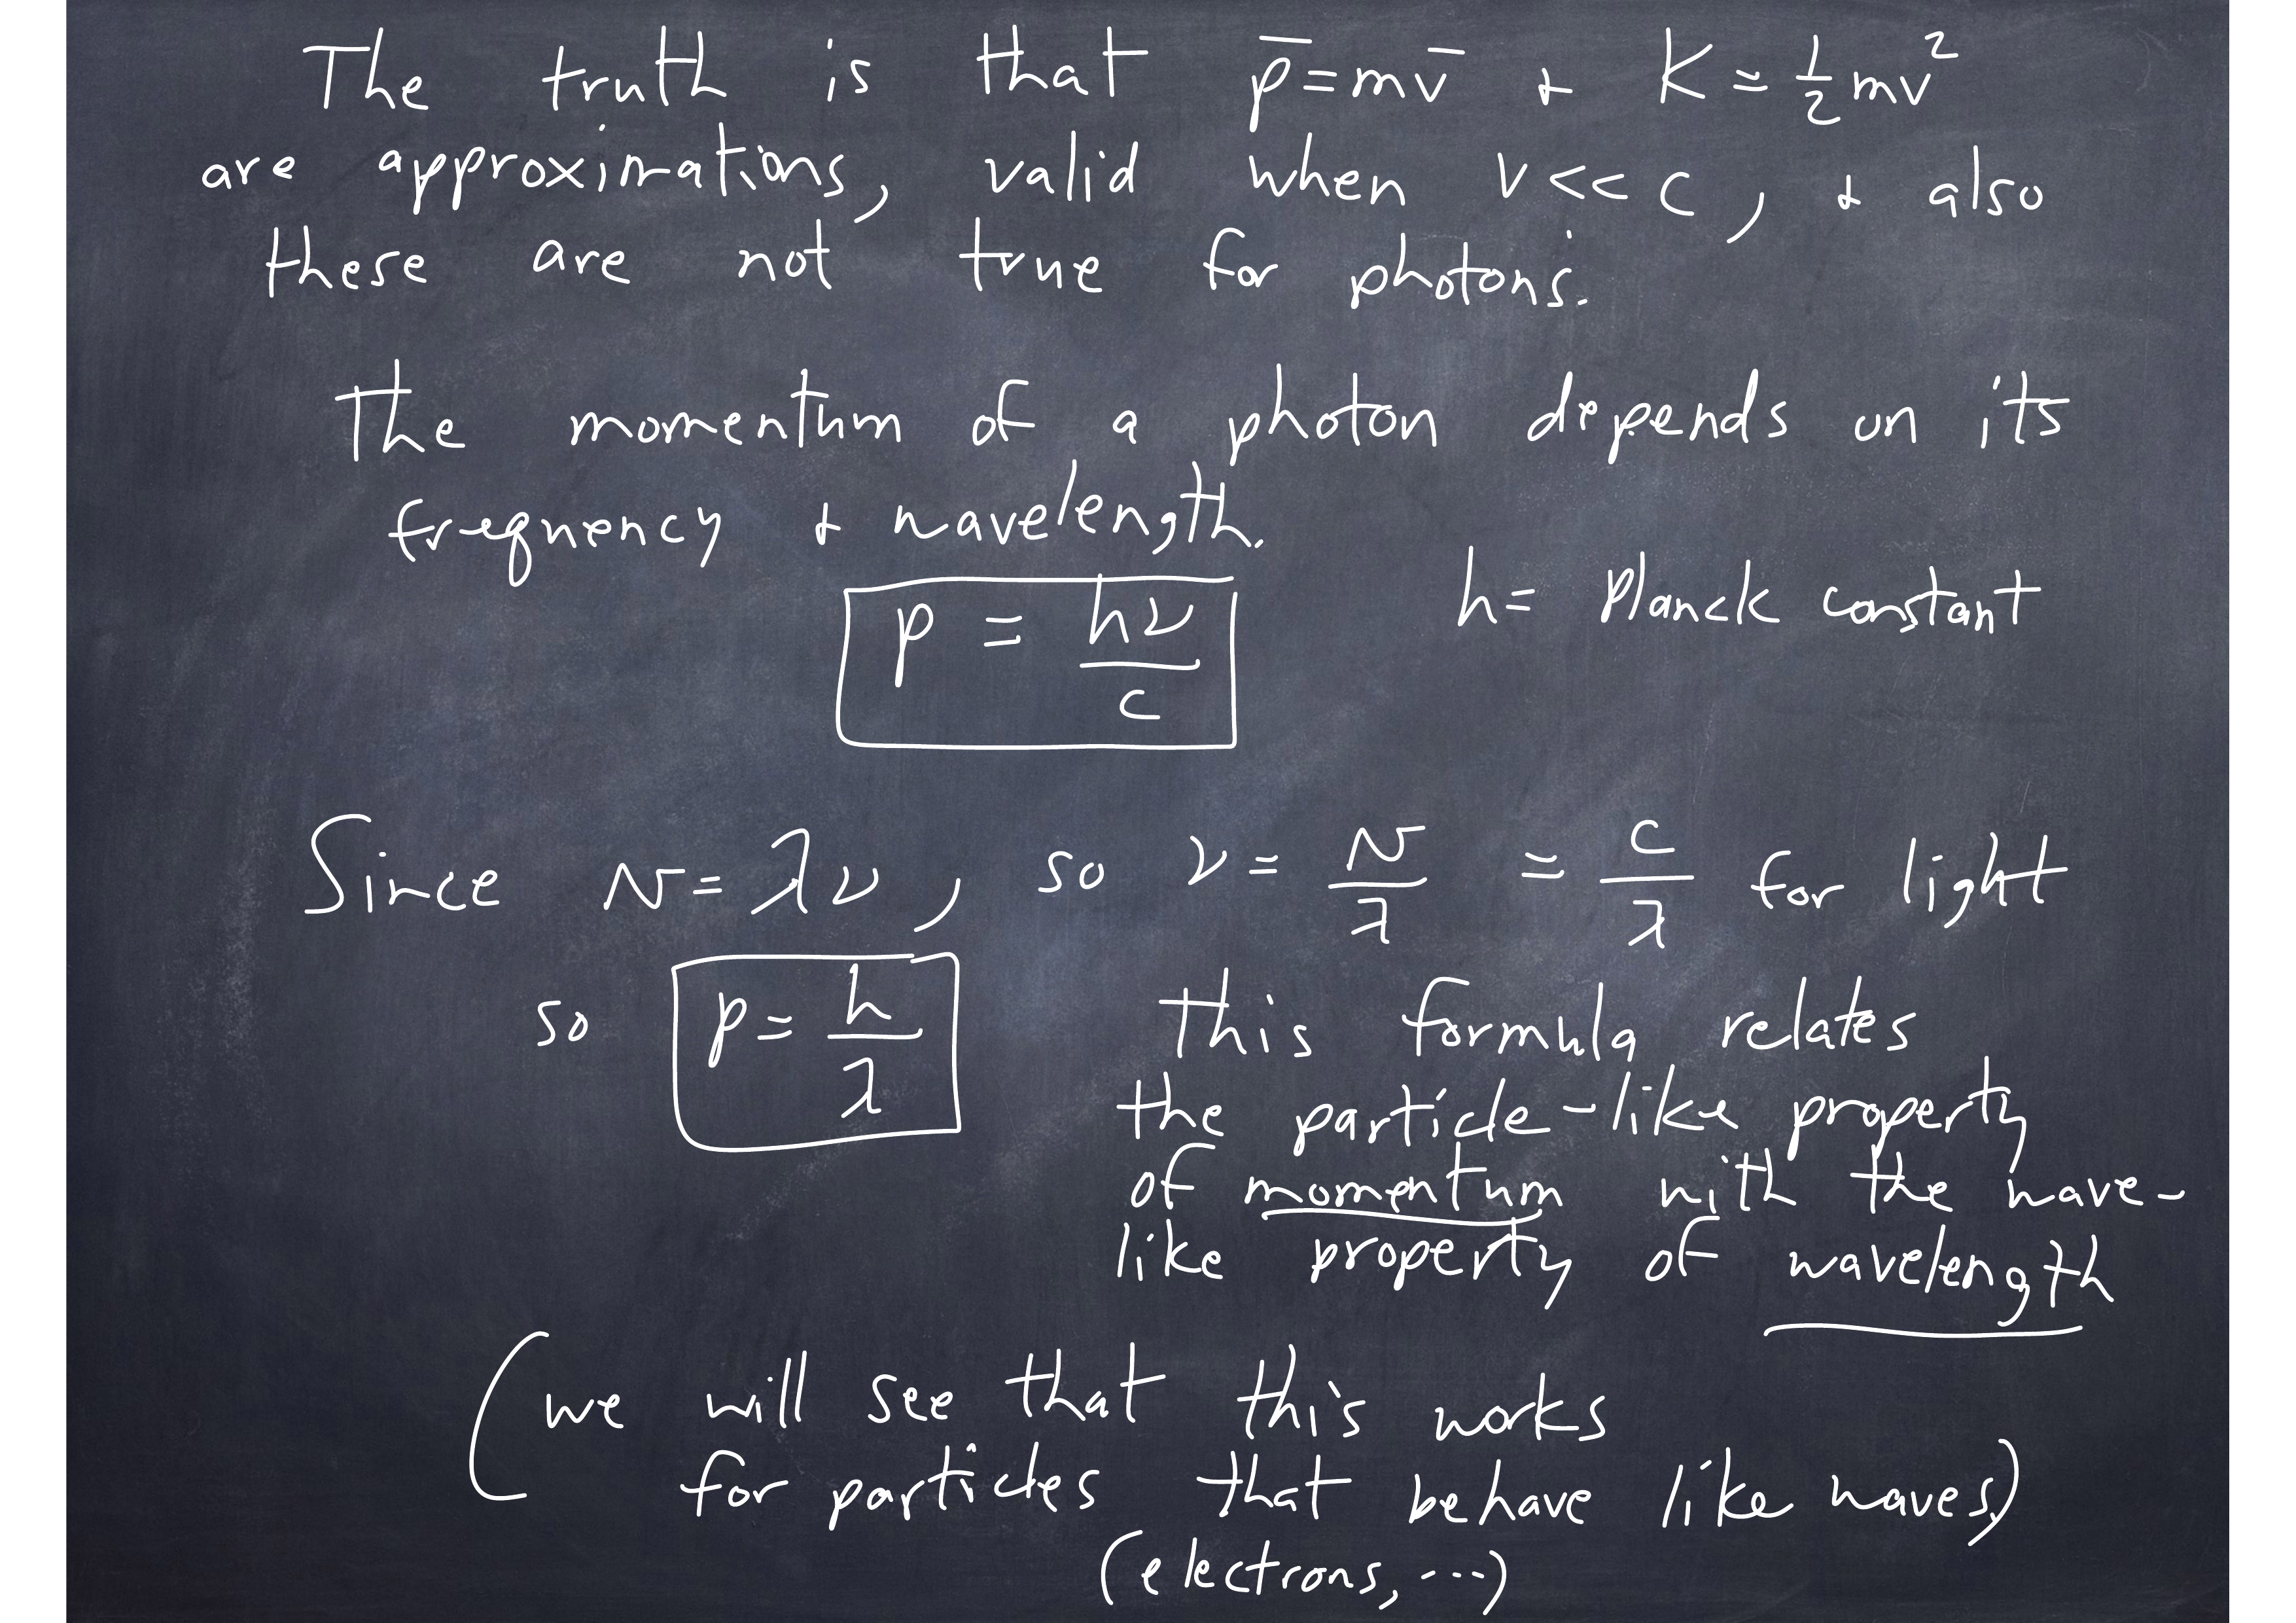 The truth is that p̄ = mv̄ & K = ½mv²
are approximations, valid when v << c, & also
these are not true for photons.
The momentum of a photon depends on its
frequency & wavelength.
h = Planck constant
p = hν/c
Since v = λν, so ν = v/λ = c/λ for light
so p = h/λ
This formula relates
the particle-like property
of momentum with the wave-
like property of wavelength
(we will see that this works
for particles that behave like waves)
(electrons, ...)